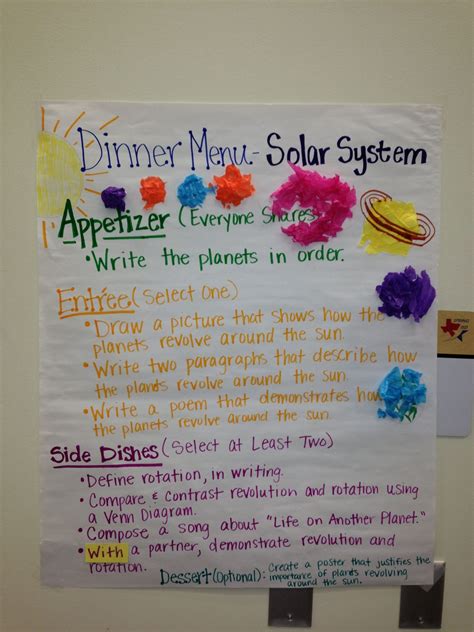 Dinner Menu- Solar System
Appetizer (Everyone Shares)
• Write the planets in order.
Entrée (Select One)
• Draw a picture that shows how the
planets revolve around the sun.
• Write two paragraphs that describe how
the plants revolve around the sun.
• Write a poem that demonstrates how
the planets revolve around the sun.
Side Dishes (Select at Least Two)
• Define rotation, in writing.
• Compare & Contrast revolution and rotation using
a Venn Diagram.
• Compose a song about "Life on Another Planet."
• With a partner, demonstrate revolution and
rotation.
Dessert (Optional): Create a poster that justifies the
importance of plants revolving
around the sun.